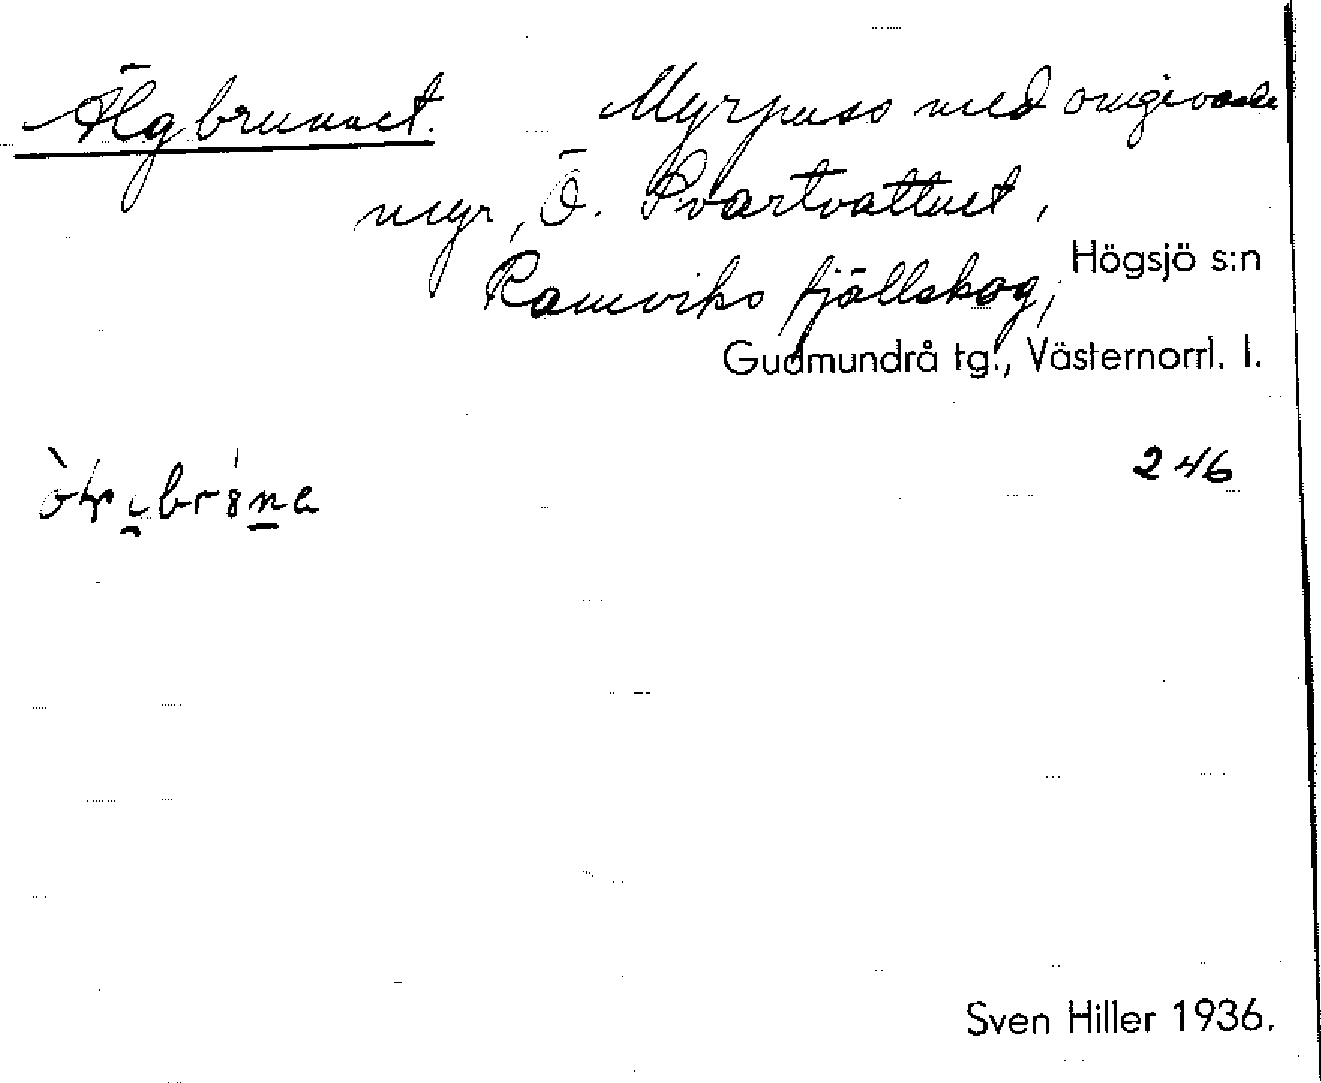 Älgbrunnet. Myrpuss med omgivande
myr, Ö. Svartvattnet,
Ramviks fjällskog, Högsjö s:n
Gudmundrå tg., Västernorrl. l.
246
Sven Hiller 1936.